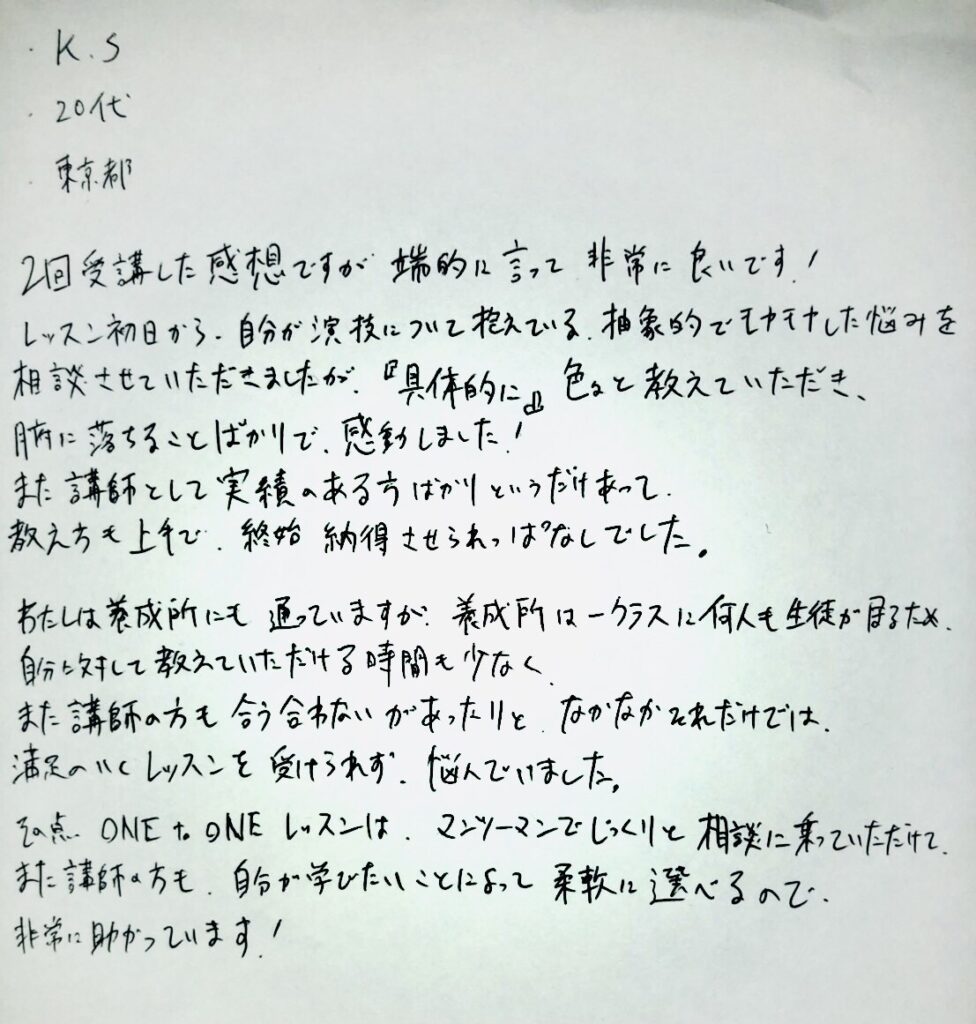 ・K.S
・20代
・東京都
2回受講した感想ですが 端的に言って 非常に良いです！
レッスン初日から、自分が演技について抱えている、抽象的でモヤモヤした悩みを
相談させていただきましたが、『具体的に』色々と教えていただき、
腑に落ちることばかりで、感動しました！
また講師として実績のある方ばかりというだけあって、
教え方も上手で、終始 納得させられっぱなしでした。
わたしは養成所にも 通っていますが、養成所は一クラスに何人も生徒が居るため、
自分に対して教えていただける時間も少なく、
また講師の方も 合う合わないがあったりと、なかなかそれだけでは、
満足のいくレッスンを 受けられず、悩んでいました。
その点、ONE to ONE レッスンは、マンツーマンでじっくりと 相談に乗っていただけて、
また講師の方も、自分が学びたいことによって 柔軟に 選べるので、
非常に助かっています！